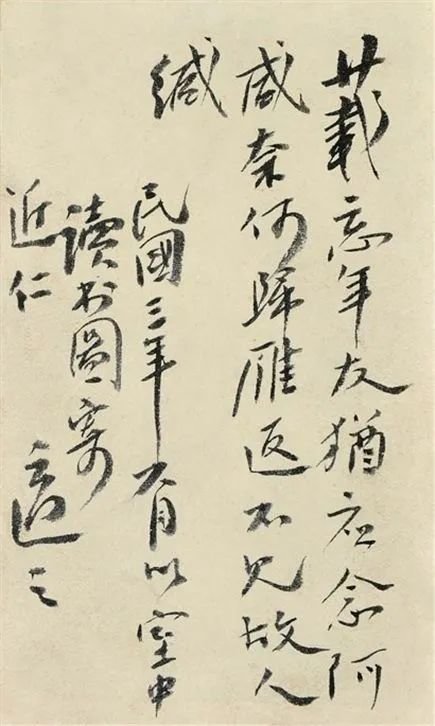 廿載忘年友猶應念阿
咸奈何歸雁返不見故人
緘
民國三年六月以室中
讀書圖寄
近仁 適之